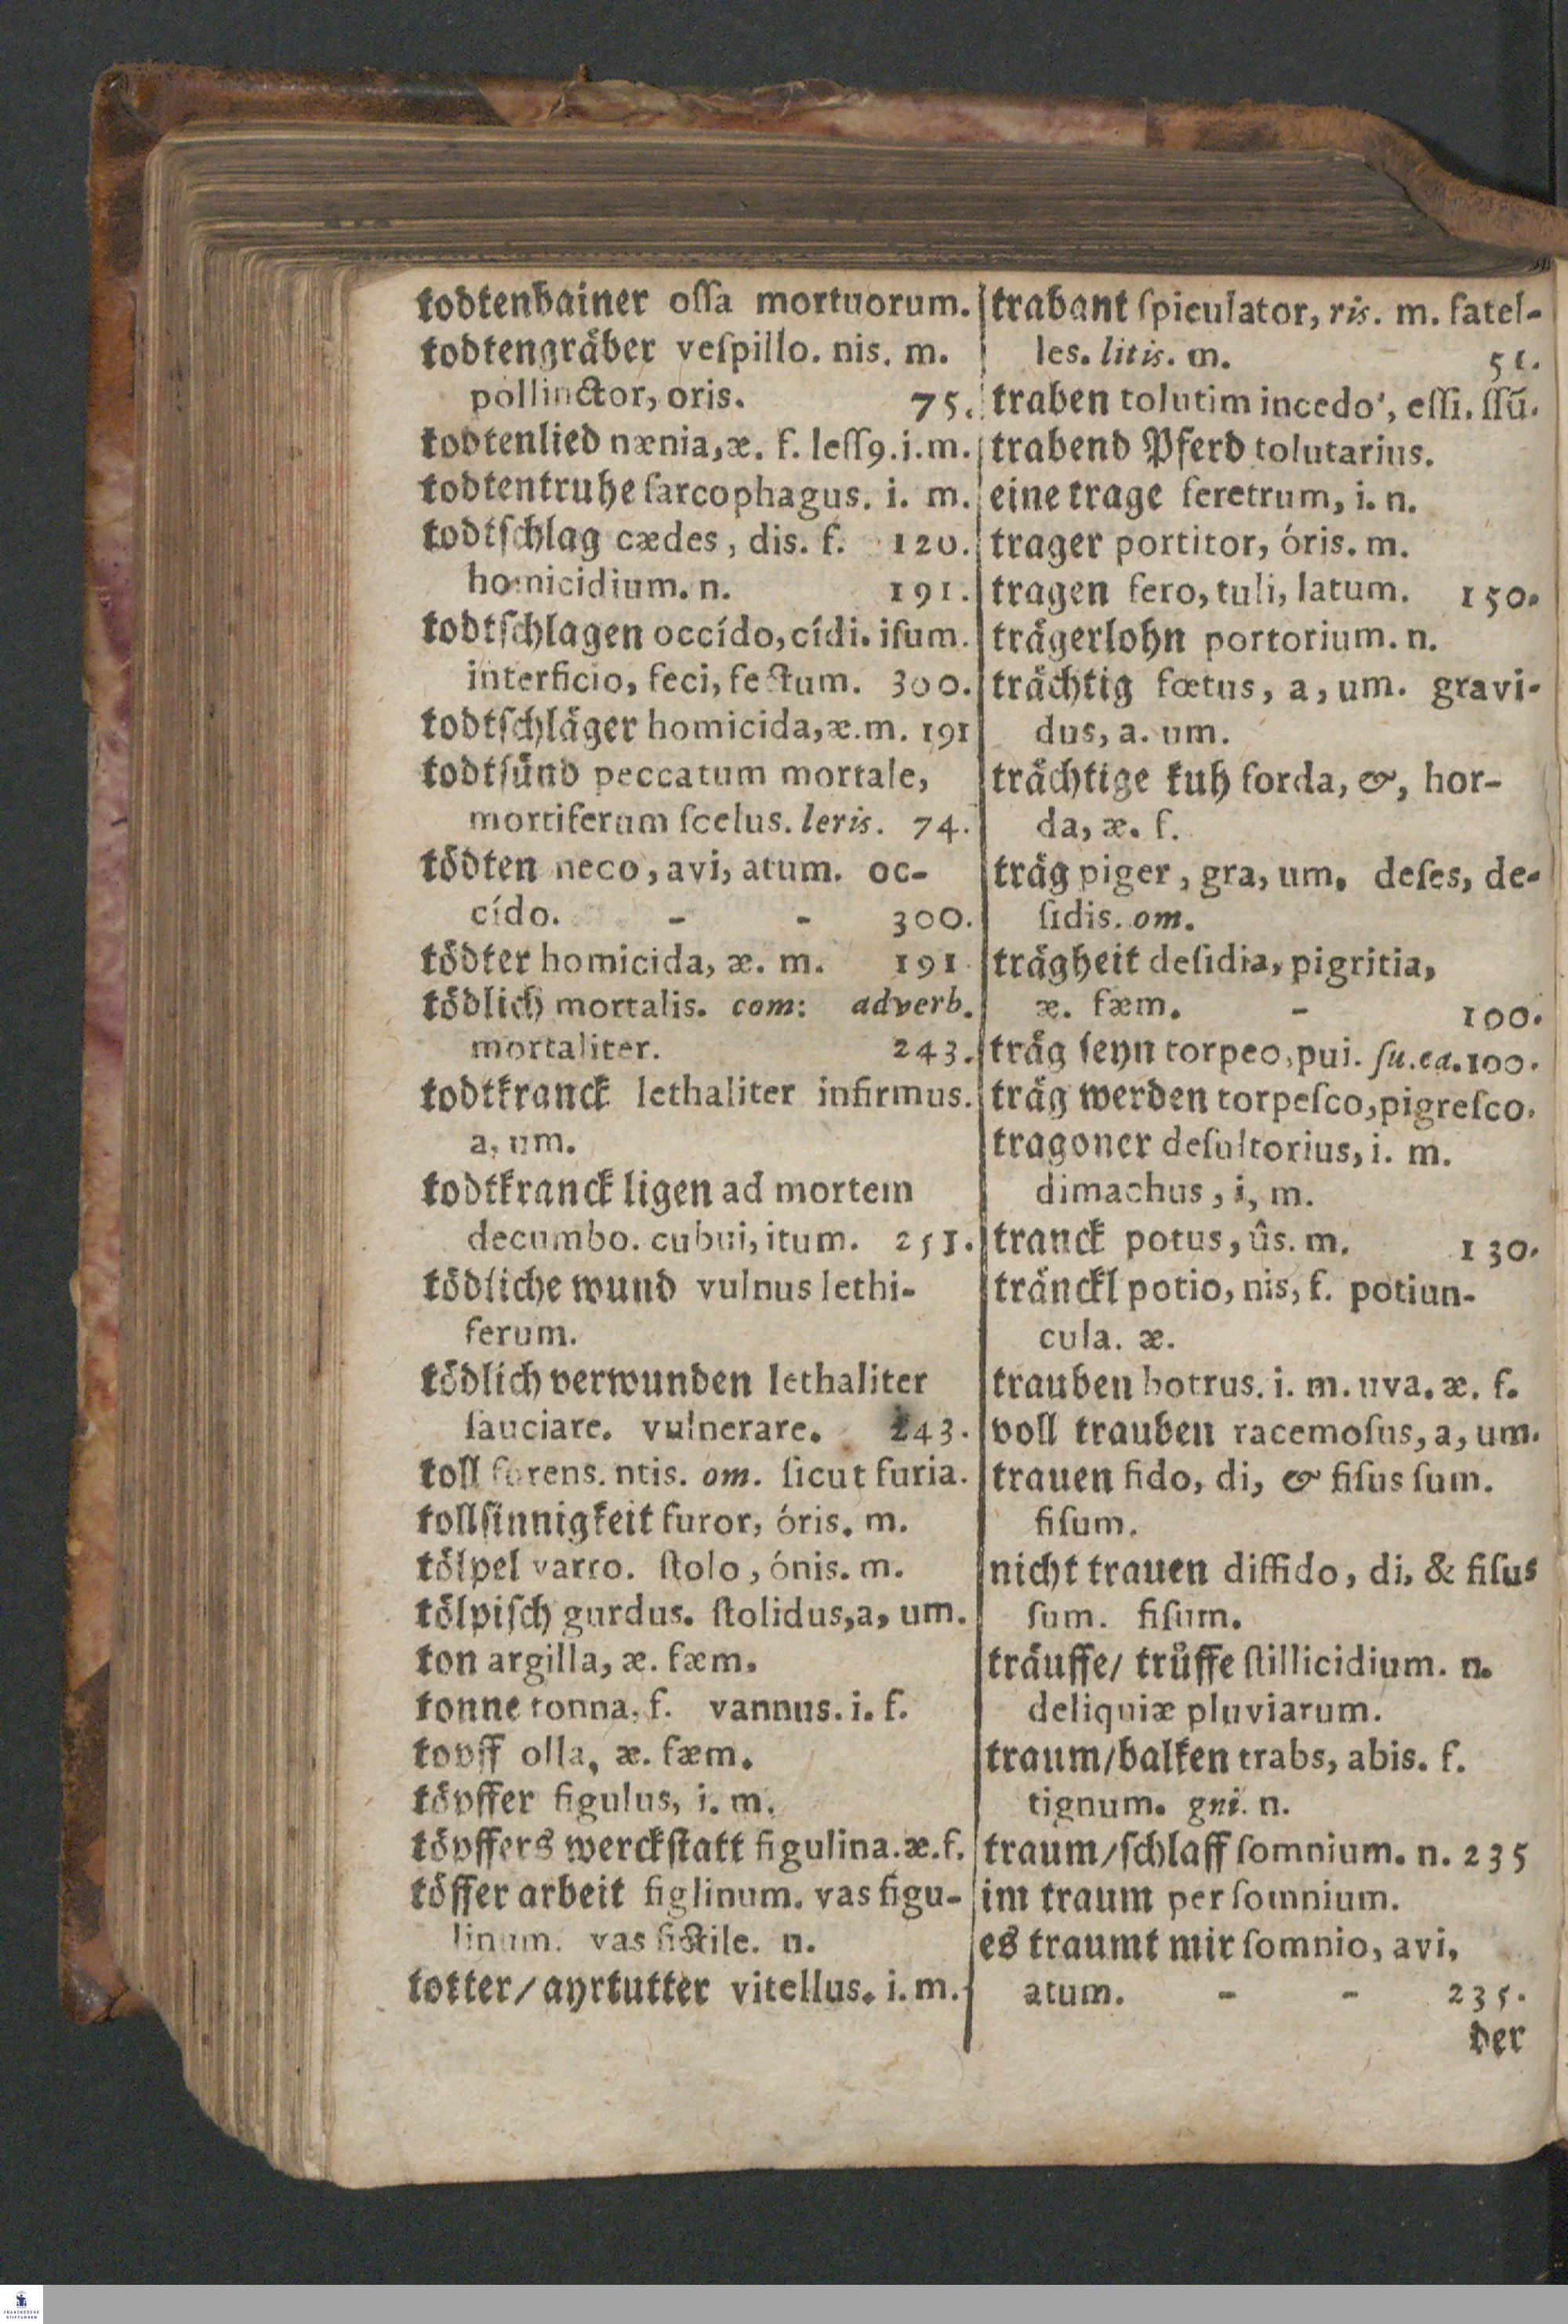 todtenbainer oſſa mortuorum.
todtengräber veſpillo. nis. m.
pollinctor, oris. 75.
todtenlied nænia, æ. f. leſſ9. i. m.
todtentruhe ſarcophagus. i. m.
todtſchlag cædes, dis. f. 120.
homicidium. n. 191.
todtſchlagen occído, cídi. iſum.
interficio, feci, fectum. 300.
todtſchläger homicida, æ. m. 191
todtſünd peccatum mortale,
mortiferum ſcelus. leris. 74.
tödten neco, avi, atum. oc-
cído. - - 300.
tödter homicida, æ. m. 191
tödlich mortalis. com: adverb.
mortaliter. 243.
todtkranck lethaliter infirmus.
a, um.
todtkranck ligen ad mortem
decumbo. cubui, itum. 251.
tödliche wund vulnus lethi-
ferum.
tödlich verwunden lethaliter
ſauciare. vulnerare. 243.
toll furens. ntis. om. ſicut furia.
tollſinnigkeit furor, óris. m.
tölpel varro. ſtolo, ónis. m.
tölpiſch gurdus. ſtolidus, a, um.
ton argilla, æ. fæm.
tonne tonna. f. vannus. i. f.
topff olla, æ. fæm.
töpffer figulus, i. m.
töpffers werckſtatt figulina. æ. f.
töffer arbeit figlinum. vas figu-
linum. vas fictile. n.
totter/ayrtutter vitellus. i. m.
trabant ſpiculator, ris. m. ſatel-
les. litis. m. 51.
traben tolutim incedo', eſſi. ſſū.
trabend Pferd tolutarius.
eine trage feretrum, i. n.
trager portitor, óris. m.
tragen fero, tuli, latum. 150.
trägerlohn portorium. n.
trächtig fœtus, a, um. gravi-
dus, a. um.
trächtige kuh forda, &, hor-
da, æ. f.
träg piger, gra, um. deſes, de-
ſidis. om.
trägheit deſidia, pigritia,
æ. fæm. - 100.
träg ſeyn torpeo, pui. ſu. ca. 100.
träg werden torpeſco, pigreſco.
tragoner deſultorius, i. m.
dimachus, i, m.
tranck potus, ûs. m. 130.
tränckl potio, nis, f. potiun-
cula. æ.
trauben botrus. i. m. uva. æ. f.
voll trauben racemoſus, a, um.
trauen fido, di, & fiſus ſum.
fiſum.
nicht trauen diffido, di, & fiſus
ſum. fiſum.
träuffe/ trůffe ſtillicidium. n.
deliquiæ pluviarum.
traum/balken trabs, abis. f.
tignum. gni. n.
traum/ſchlaff ſomnium. n. 235
im traum per ſomnium.
es traumt mir ſomnio, avi,
atum. - - 235.
der
FRANCKESCHE
STIFTUNGEN